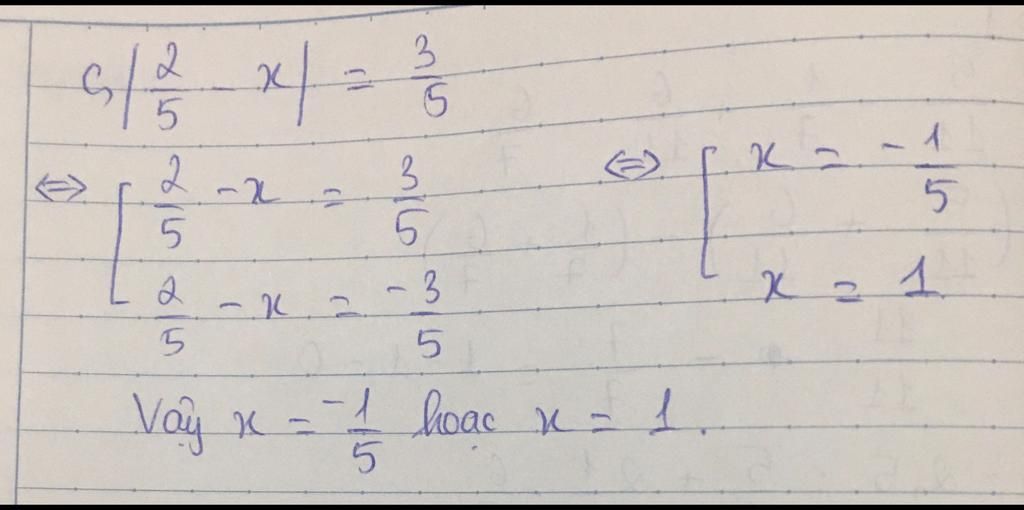 c, |2/5 - x| = 3/5
⇔ [ 2/5 - x = 3/5
2/5 - x = -3/5
⇔ [ x = -1/5
x = 1
Vậy x = -1/5 hoặc x = 1.